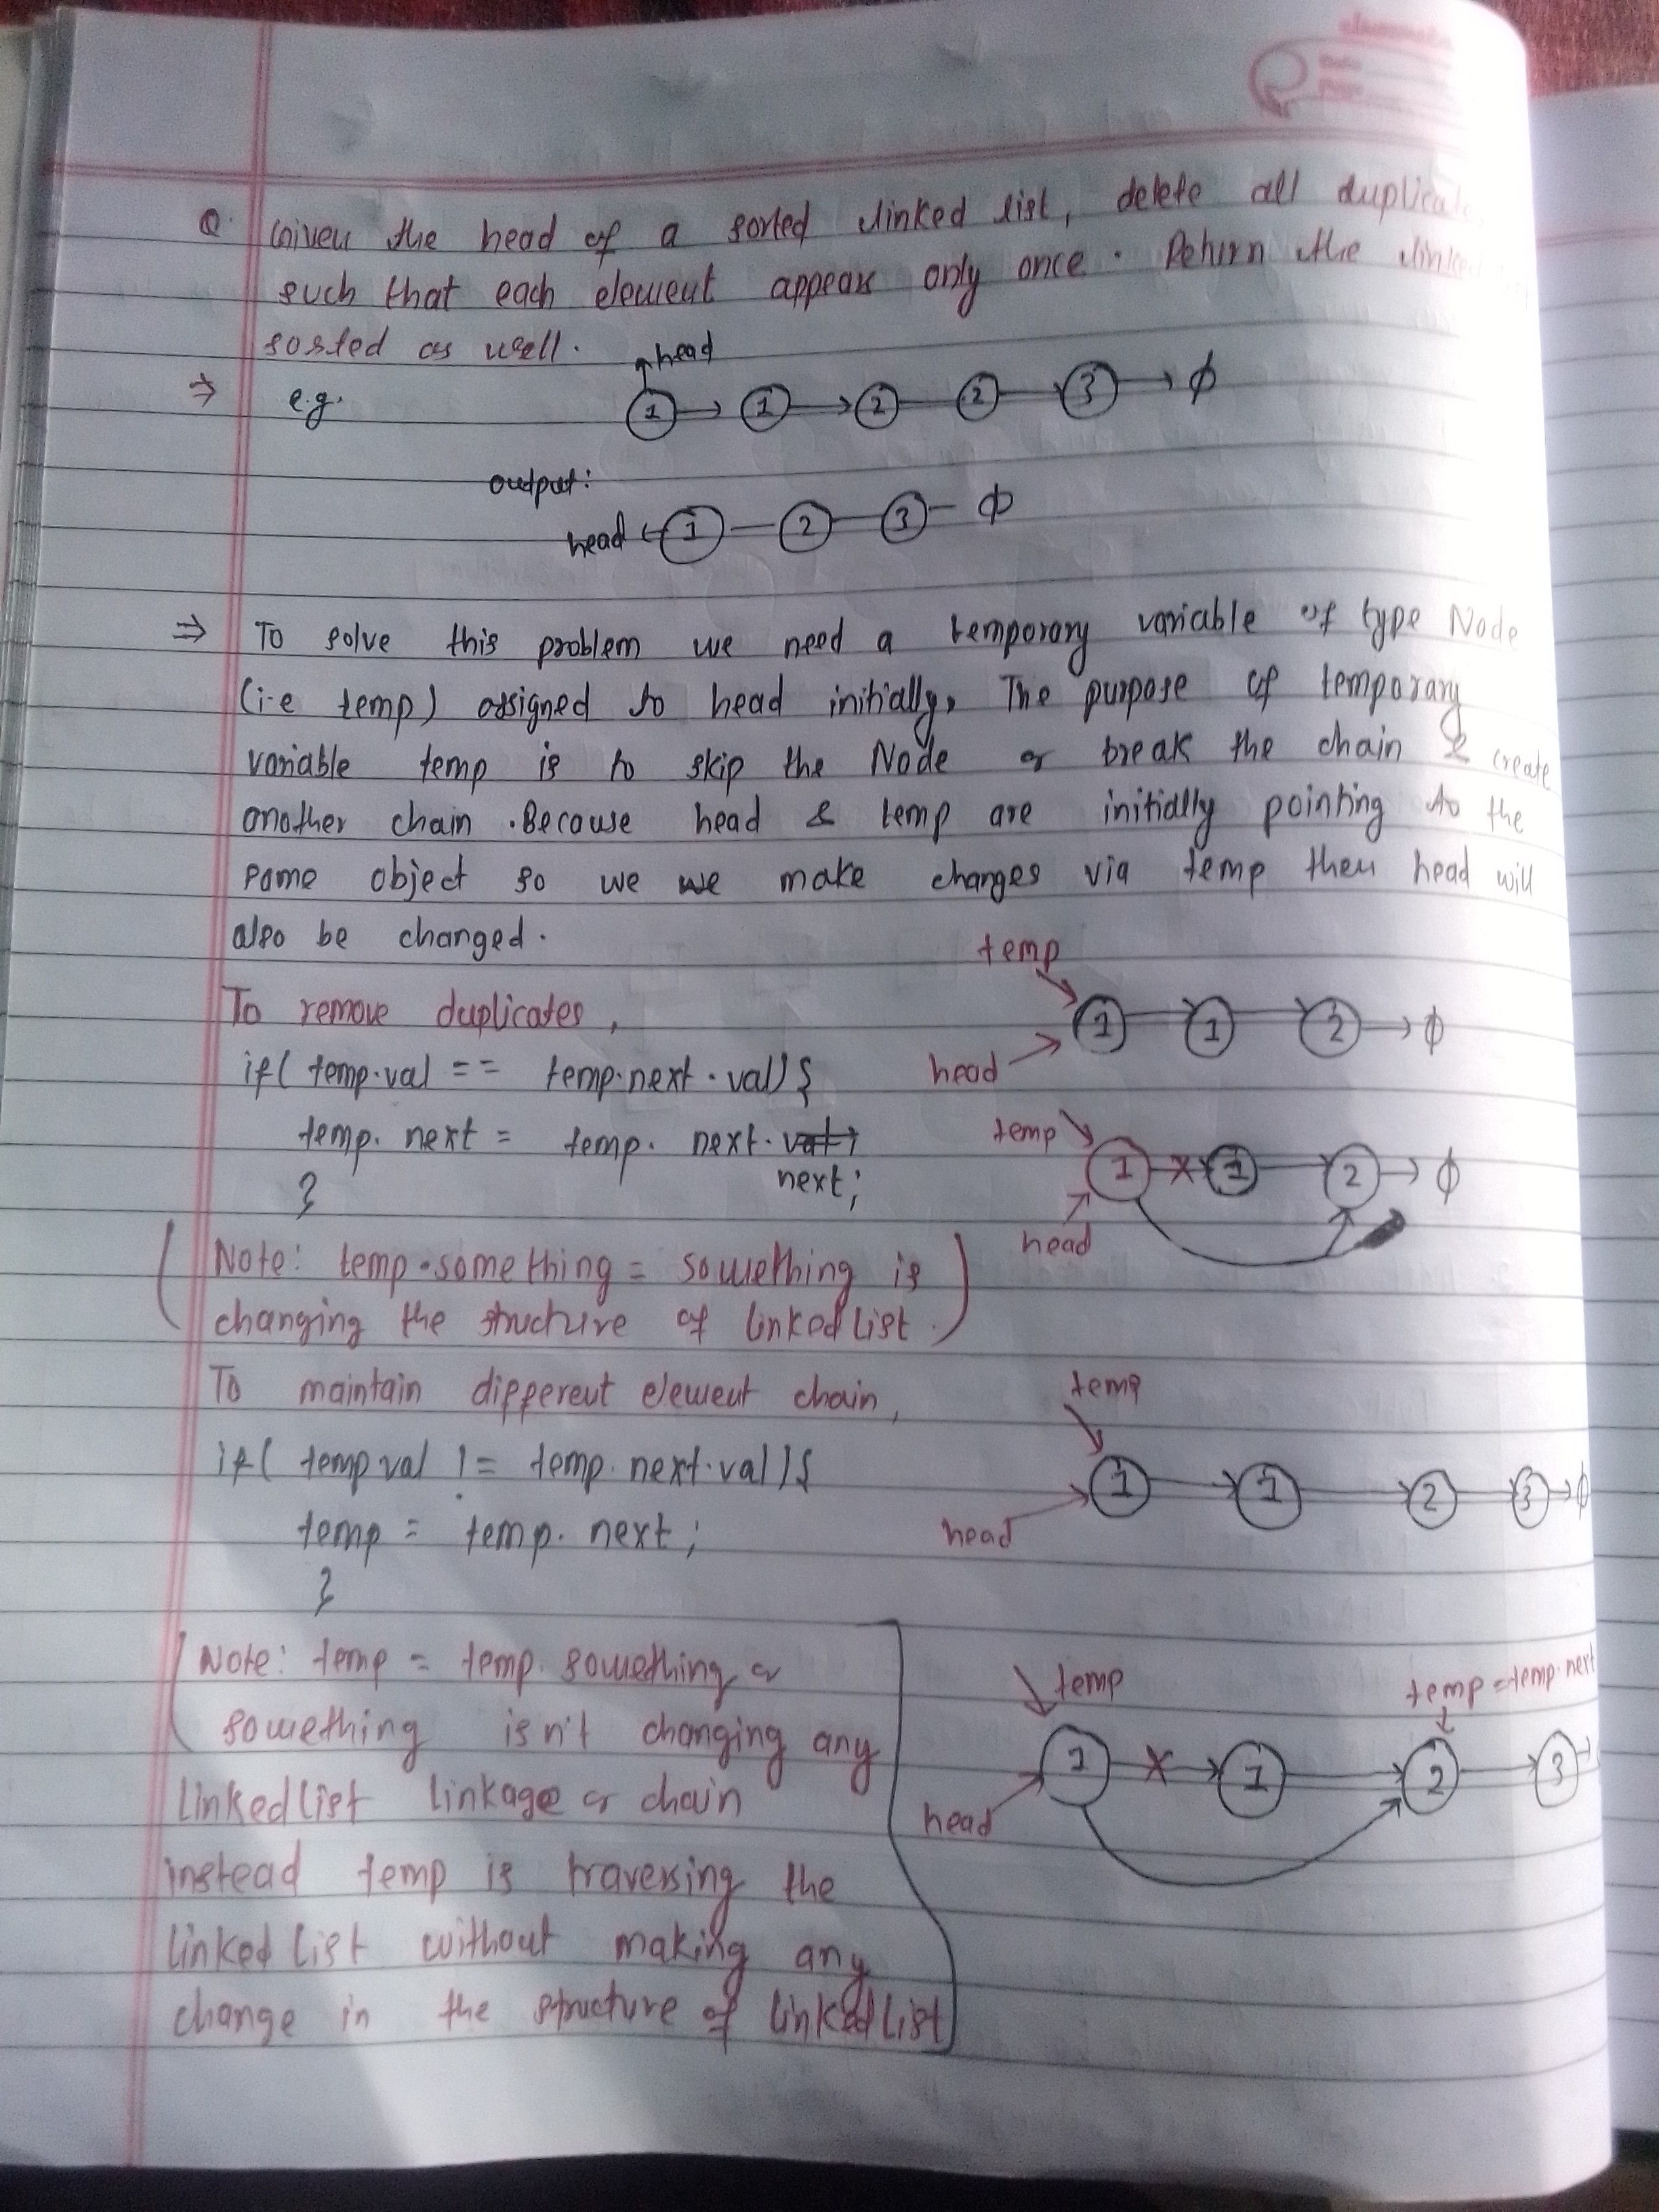 classmate
Date
Page
Q. Given the head of a sorted linked list, delete all
such that each element appears only once. Return the
sorted as well.
head
⇒ e.g. 1 → 1 → 2 — 2 → 3 → ϕ
output:
head ← 1 — 2 — 3 — ϕ
⇒ To solve this problem we need a temporary variable of type Node
(i.e temp) assigned to head initially, The purpose of temporary
variable temp is to skip the Node or break the chain & create
another chain. Because head & temp are initially pointing to the
same object so we we make changes via temp then head will
also be changed.
temp
To remove duplicates,
1 → 1 → 2 → ϕ
head
if( temp.val == temp.next.val){
temp. next = temp. next. val;
next;
}
temp
1 x 1 → 2 → ϕ
head
(Note: temp.something = something is
changing the structure of linkedlist.)
To maintain different element chain,
temp
if( temp val != temp. next.val){
1 → 1 → 2 → 3 → ϕ
head
temp = temp. next ;
}
(Note: temp = temp. something or
something isn't changing any
linkedlist linkage or chain
instead temp is traversing the
linked list without making any
change in the structure of linkedlist)
temp
temp = temp.next
1 x → 1 → 2 → 3 →
head